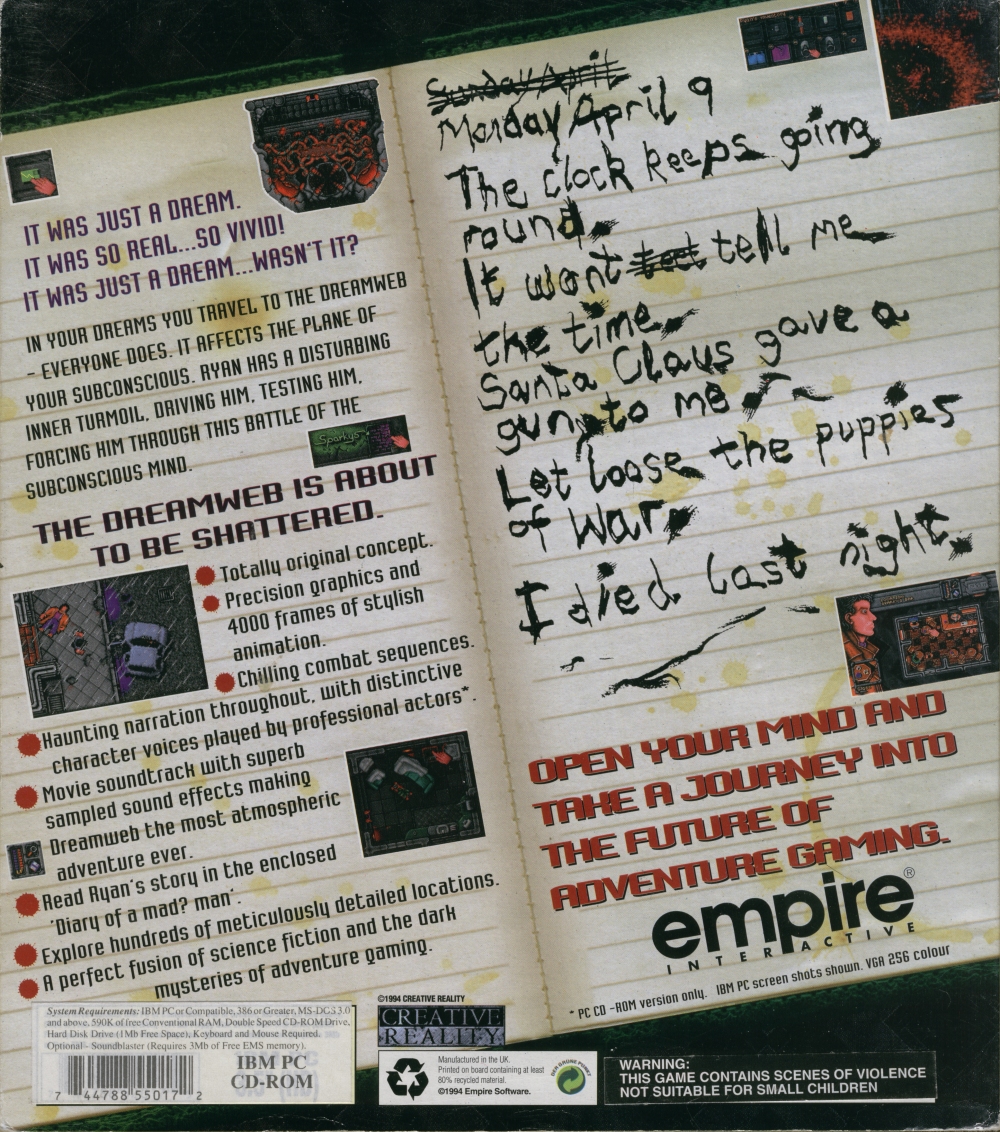 IT WAS JUST A DREAM.
IT WAS SO REAL...SO VIVID!
IT WAS JUST A DREAM...WASN'T IT?
IN YOUR DREAMS YOU TRAVEL TO THE DREAMWEB
- EVERYONE DOES. IT AFFECTS THE PLANE OF
YOUR SUBCONSCIOUS. RYAN HAS A DISTURBING
INNER TURMOIL, DRIVING HIM, TESTING HIM,
FORCING HIM THROUGH THIS BATTLE OF THE
SUBCONSCIOUS MIND.
Sparkys
THE DREAMWEB IS ABOUT
TO BE SHATTERED.
Totally original concept.
Precision graphics and
4000 frames of stylish
animation.
Chilling combat sequences.
Haunting narration throughout, with distinctive
character voices played by professional actors*.
Movie soundtrack with superb
sampled sound effects making
Dreamweb the most atmospheric
adventure ever.
Read Ryan's story in the enclosed
'Diary of a mad? man'.
Explore hundreds of meticulously detailed locations.
A perfect fusion of science fiction and the dark
mysteries of adventure gaming.
Sunday April
Monday April 9
The clock keeps going
round.
It wont teet tell me
the time.
Santa Claus gave a
gun to me
Let loose the puppies
of War.
I died last night.
OPEN YOUR MIND AND
TAKE A JOURNEY INTO
THE FUTURE OF
ADVENTURE GAMING.
empire®
INTERACTIVE
* PC CD -ROM version only. IBM PC screen shots shown. VGA 256 colour
System Requirements: IBM PC or Compatible, 386 or Greater, MS-DOS 3.0
and above, 590K of free Conventional RAM, Double Speed CD-ROM Drive,
Hard Disk Drive (1Mb Free Space), Keyboard and Mouse Required.
Optional - Soundblaster (Requires 3Mb of Free EMS memory).
IBM PC
CD-ROM
7 44788 55017 2
©1994 CREATIVE REALITY
CREATIVE
REALITY
Manufactured in the UK.
Printed on board containing at least
80% recycled material.
©1994 Empire Software.
DER GRÜNE PUNKT
WARNING:
THIS GAME CONTAINS SCENES OF VIOLENCE
NOT SUITABLE FOR SMALL CHILDREN